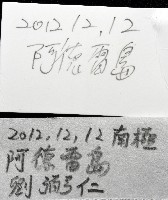 2012,12,12
阿德雷島
2012,12,12 南極
阿德雷島
劉弼仁